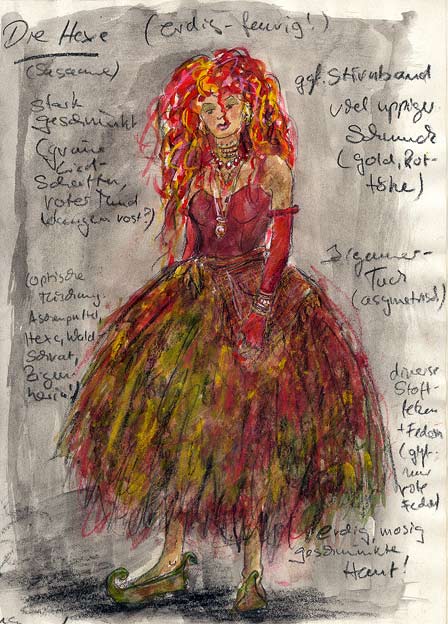 Die Hexe (erdig-feurig!)
(Susanne)
Stark
geschminkt
(grüne
Lid-
Schatten,
roter Mund
Wangen rost?)
(optische
Mischung
Aschenputtel,
Hexe, Wald-
Schrat,
Zigeu-
nerin!)
ggf. Stirnband
viel üppiger
Schmuck
(gold, Rot-
töne)
Zigeuner-
Tuch
(asymetrisch)
diverse
Stoff-
fetzen
+ Federn
(ggf.
nur
rote
Federn
(erdig, moosig
geschminkte
Haut!